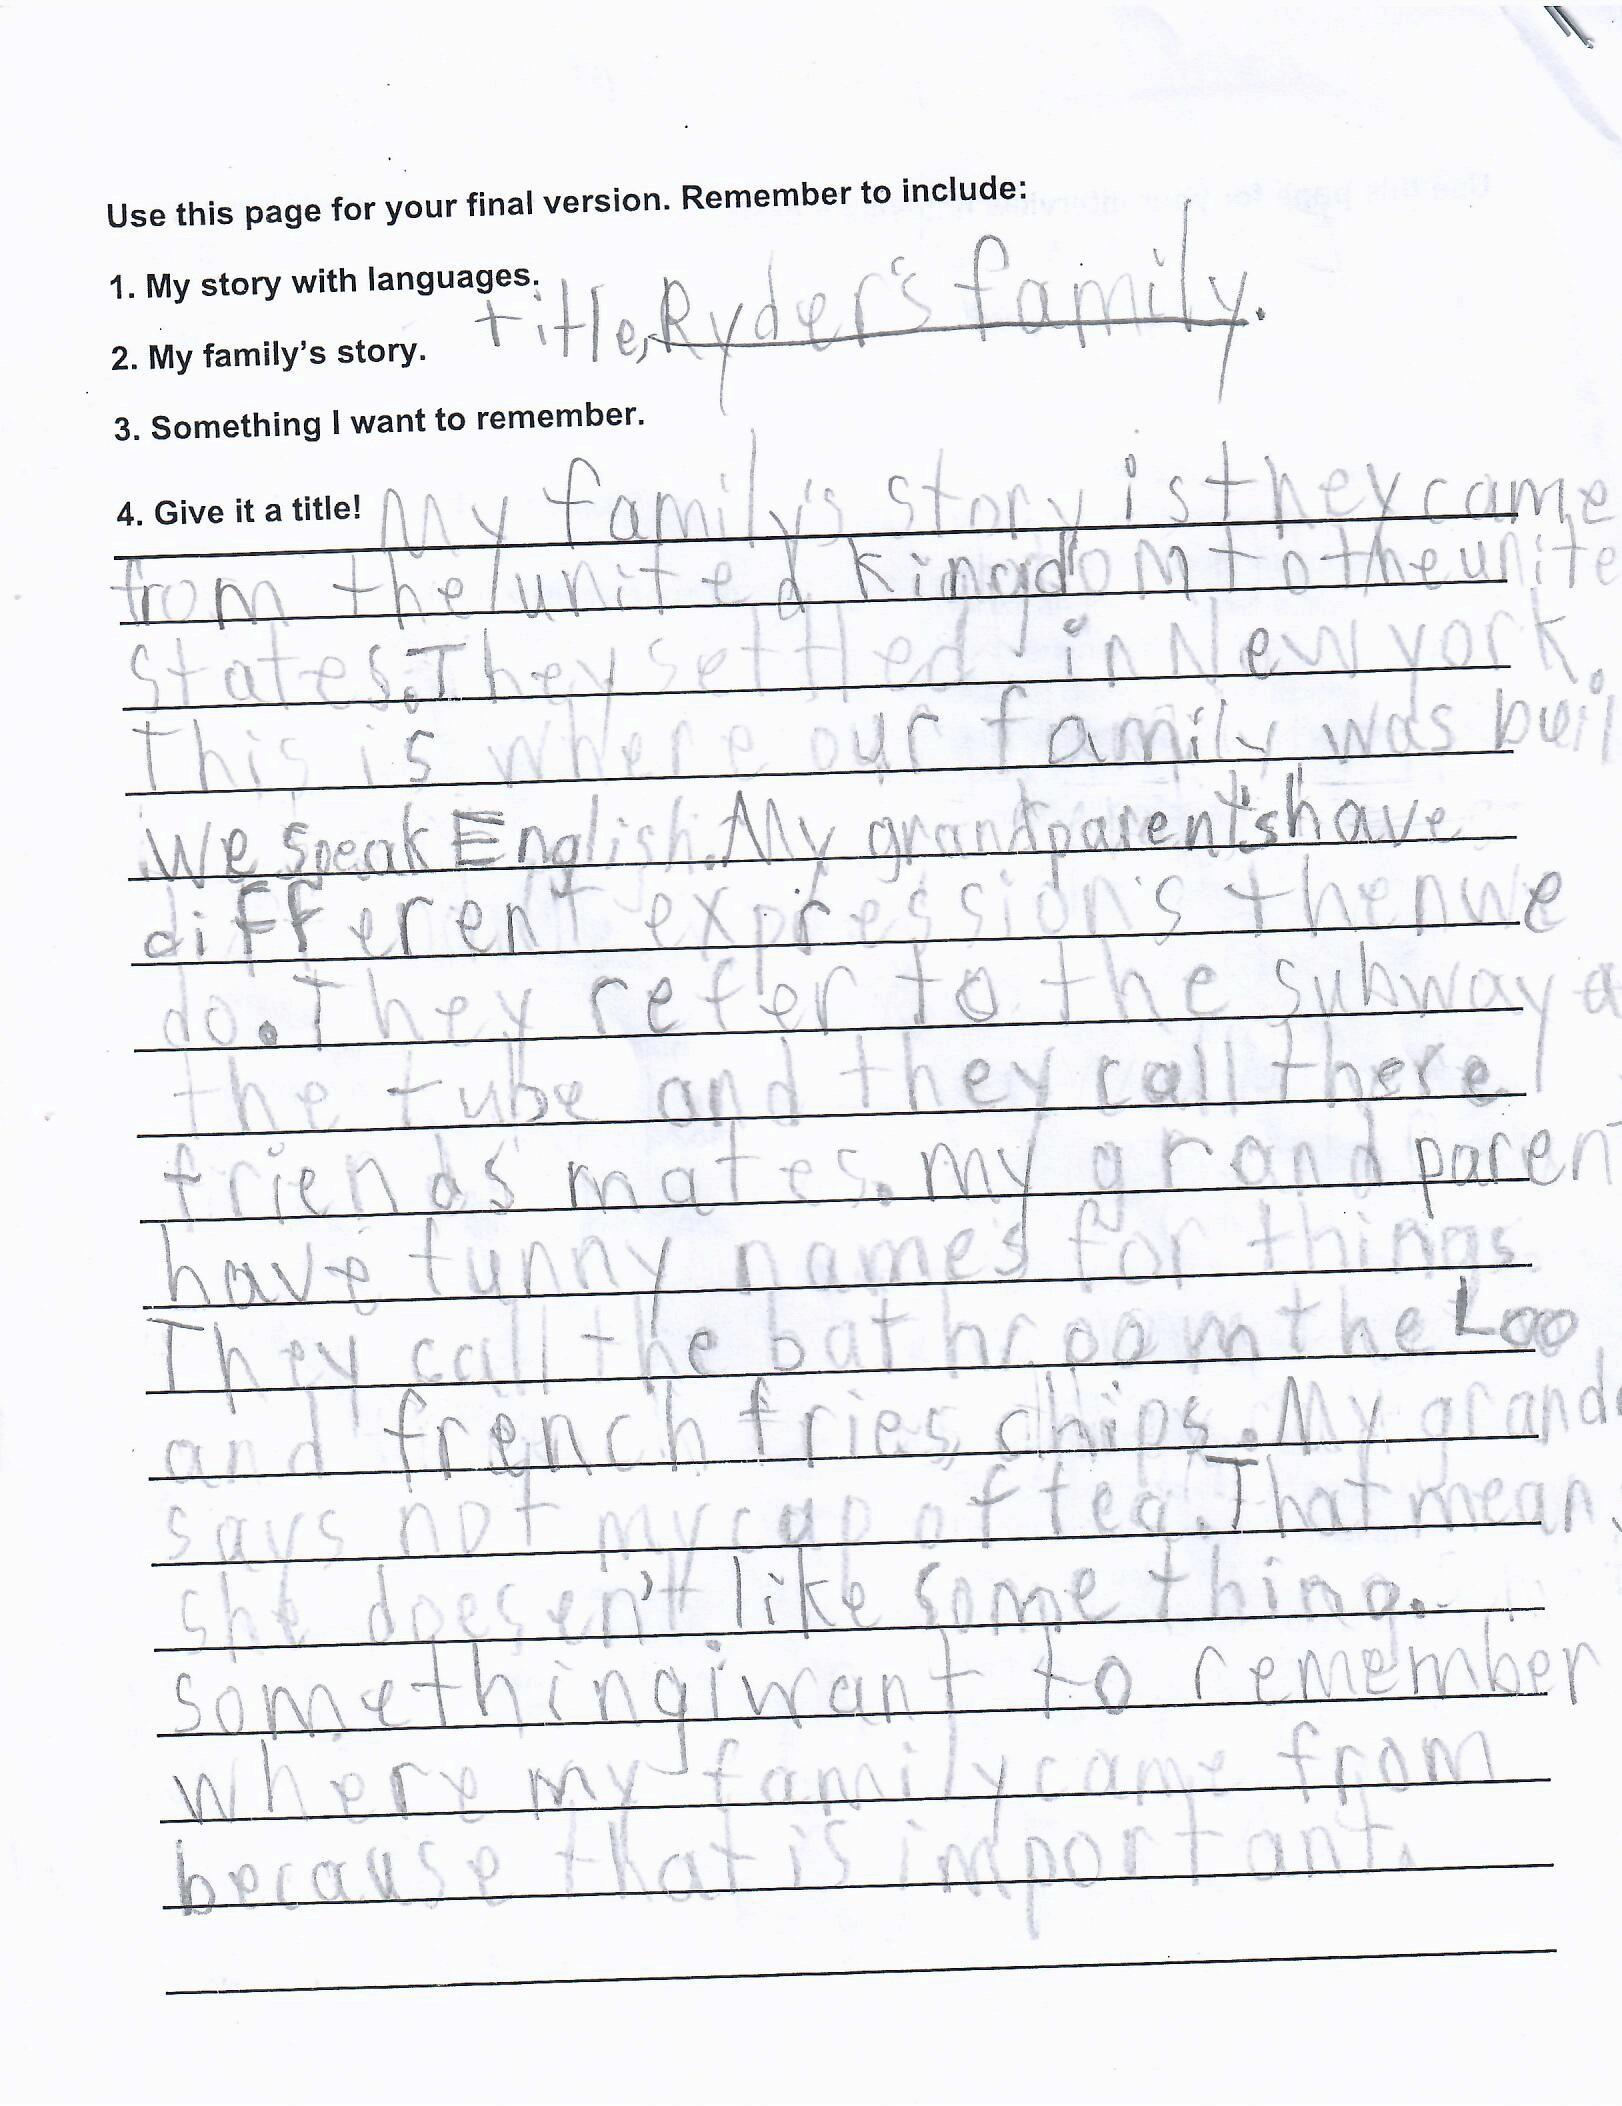 Use this page for your final version. Remember to include:
1. My story with languages.
title, Ryder's family.
2. My family's story.
3. Something I want to remember.
4. Give it a title!
My family's story is they came
from the united kingdom to the unite
states. They settled in New york.
this is where our family was buil
we speak English. My grandparent's have
different expression's then we
do. They refer to the subway a
the tube and they call there
friends mates. my grandparen
have funny names for things
They call the bathroom the Loo
and french fries, chips. My grand
says not my cup of tea. That mean
she doesen't like something.
something i want to remember
where my family came from
because that is important.